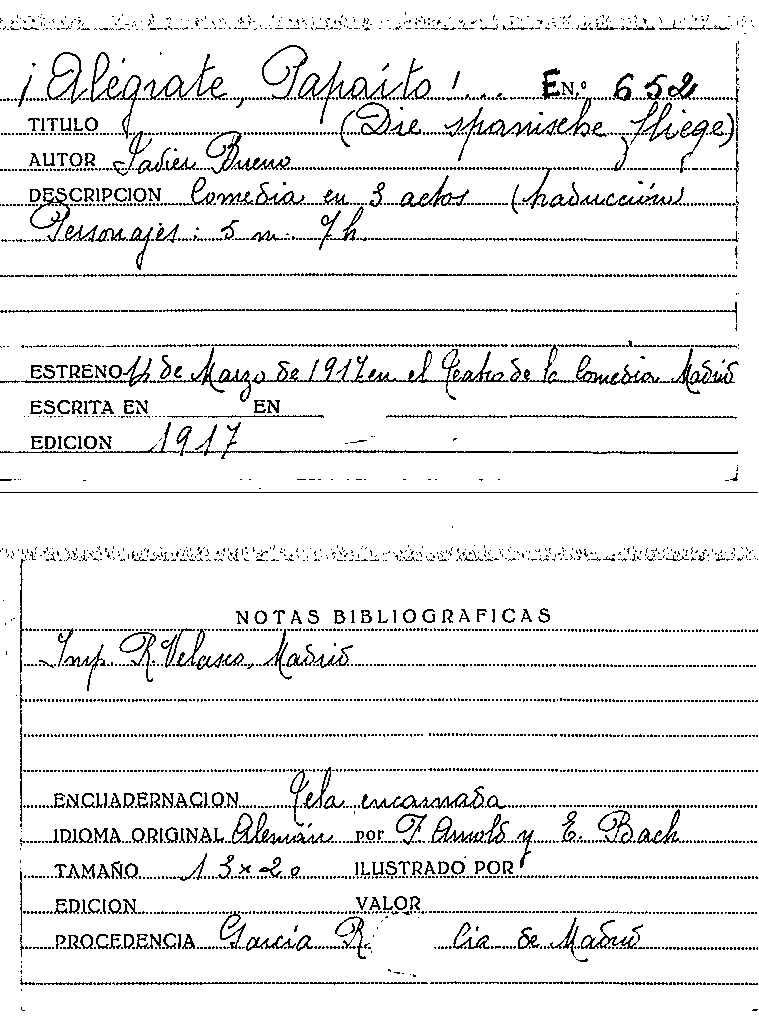 ¡Alégrate, Papaíto!... EN.º 652
TITULO (Die spanische fliege)
AUTOR Javier Bueno
DESCRIPCION Comedia en 3 actos (traducción)
Personajes: 5 m. 7 h.
ESTRENO de Marzo de 1917 en el Teatro de la Comedia Madrid
ESCRITA EN EN
EDICION 1917
NOTAS BIBLIOGRAFICAS
Imp. R. Velasco, Madrid
ENCUADERNACION Tela encarnada
IDIOMA ORIGINAL Alemán por F. Arnold y E. Bach
TAMAÑO 13x20 ILUSTRADO POR
EDICION VALOR
PROCEDENCIA García R. Cia de Madrid